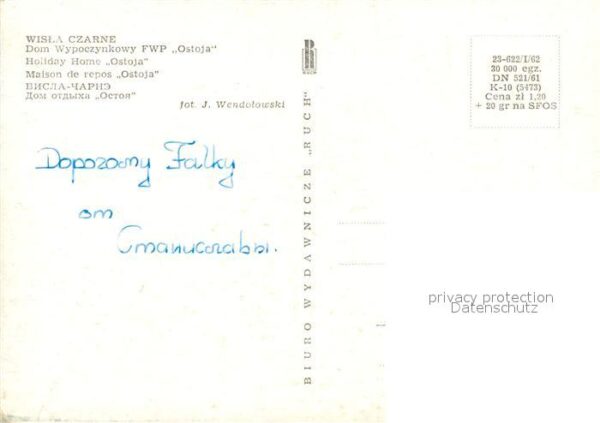 WISŁA CZARNE
Dom Wypoczynkowy FWP „Ostoja“
Holiday Home „Ostoja“
Maison de repos „Ostoja“
ВИСЛА-ЧАРНЭ
Дом отдыха „Остоя“
fot. J. Wendołowski
Дорогому Галку
от
Станиславы.
BIURO WYDAWNICZE „RUCH“
23-622/I/62
30 000 egz.
DN 521/61
K-10 (5473)
Cena zł 1,20
+ 20 gr na SFOS
privacy protection
Datenschutz